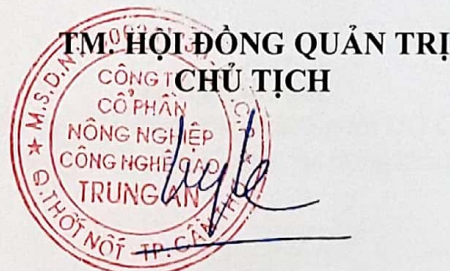 TM. HỘI ĐỒNG QUẢN TRỊ
CHỦ TỊCH
CÔNG TY
CỔ PHẦN
NÔNG NGHIỆP
CÔNG NGHỆ CAO
TRUNG AN
M.S.D.N
Q.THỐT NỐT - TP. CẦN THƠ